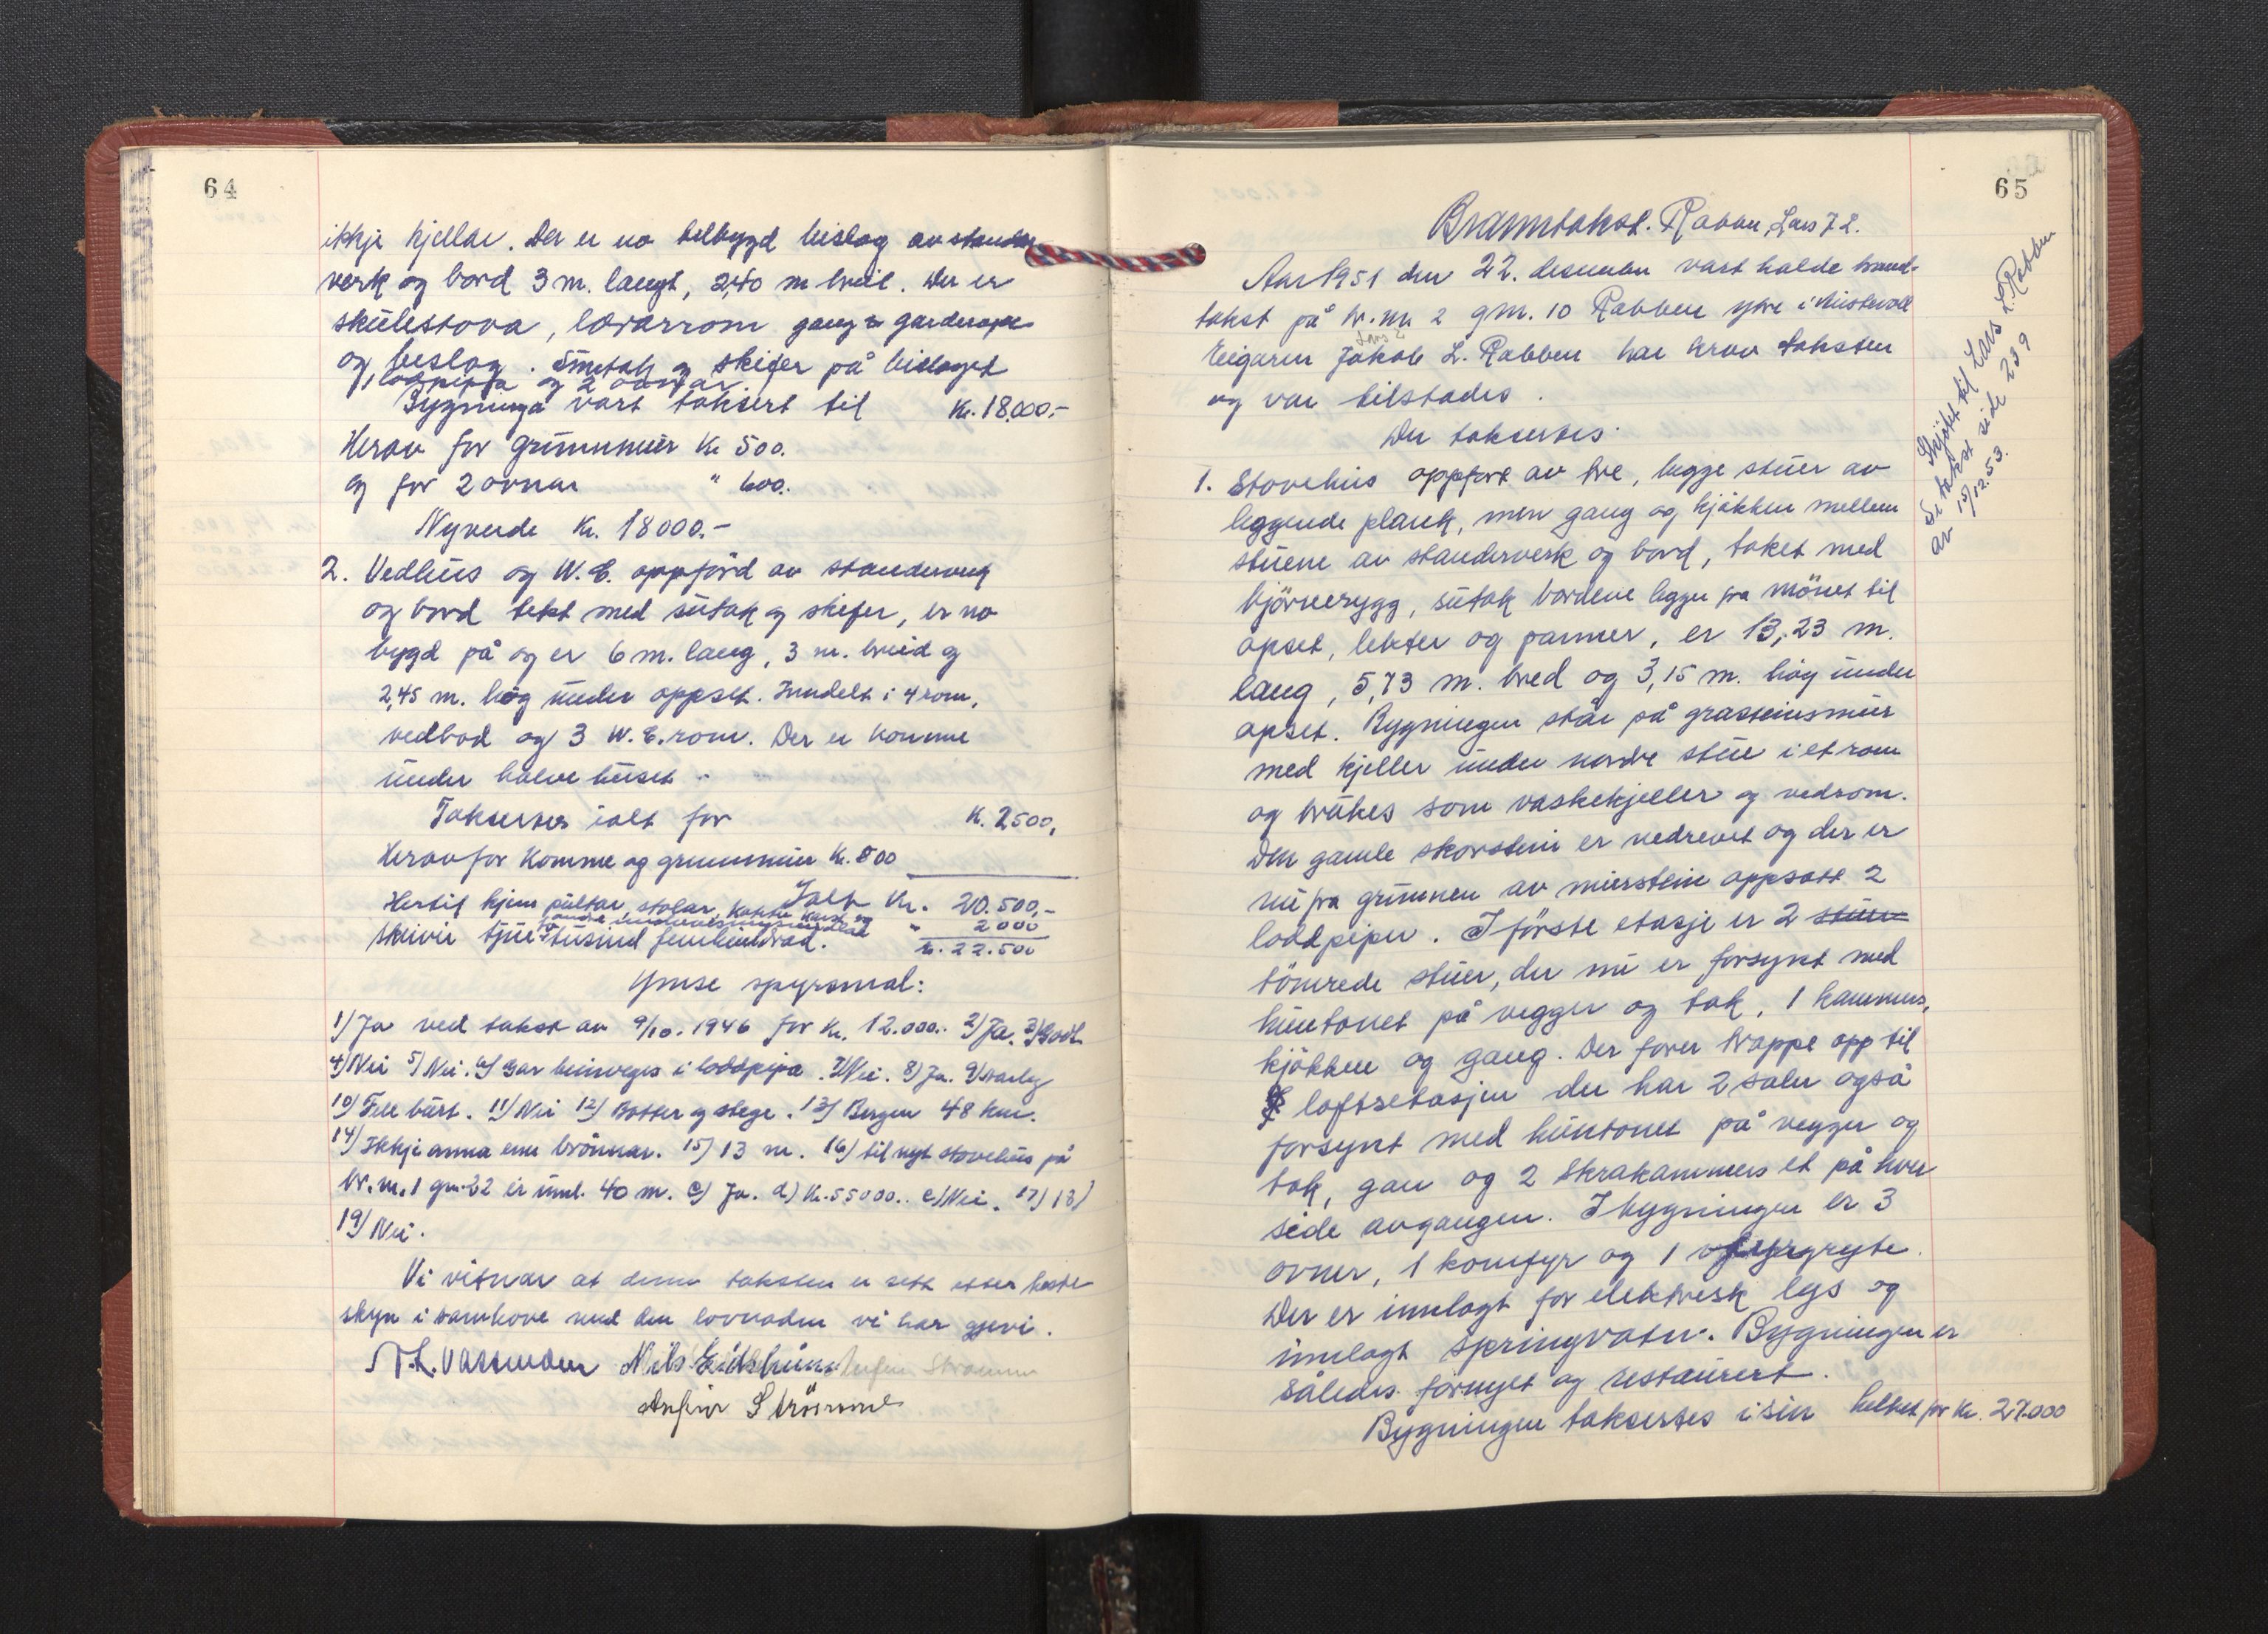 64
ikkje kjellar. Der er no tilbygd bislag av stender
verk og bord 3 m. langt, 2,40 m breit. Der er
skulestova, lærarrom gang og garderobe
og beslag. Sutak og skifer på bislaget
1 loddpipa og 2 ovnar.
Bygninga vart taksert til Kr. 18.000.-
Herav for grunnmur Kr 500.
og for 2 ovnar " 600.
Nyverde Kr. 18000.-
2. Vedhus og W.C. oppførd av standerverk
og bord tekt med sutak og skifer, er no
bygd på og er 6 m. lang, 3 m. breid og
2,45 m. høg under oppset. Inndelt i 4 rom,
vedbod og 3 W.C. rom. Der er komme
under halve huset.
Takserres ialt for K. 2500,
Herav for Komme og grunnmur Kr. 500
Ialt Kr. 20.500,-
Hertil kjem pultar, stolar, kart og
andre undervisningsmidlar " 2000
skrivir tjueto tusind femhundrad. Kr. 22.500
Ymse spyrsmal:
1) Ja ved takst av 9/10. 1946 for Kr. 12.000.. 2) Ja. 3) Godt
4) Nei 5) Nei. 6) Gar beinveges i loddpipa. 7) Nei. 8) Ja. 9) Varleg
10) Fell burt. 11) Nei 12) Bøtter og stege. 13) Bergen 48 km.
14) Ikkje anna enn brönnar. 15) 13 m. 16) til nyt stovehus på
br.nr. 1 gnr. 22 er uml. 40 m. c) Ja. d) Kr. 55000.. e) Nei. 17) 18)
19) Nei.
Vi vitnar at denne taksten er sett etter beste
skyn i samhøve med den lovnaden vi har gjevi.
N. L. Vassenden Nils Eidshaum Anfinn Strømme
Anfinn Strömme
65
Branntakst. Rabben, Lars J L.
Aar 1951 den 22. desember vart halde brand-
takst på br.nr. 2 gnr. 10 Rabben ytre i Austevoll
Lars L
Eigaren Jakob L. Rabben har krav taksten
og var tilstades.
Der taksertes:
1. Stovehus oppført av tre, begge stuer av
liggende plank, men gang og kjøkken mellem
stuene av standerverk og bord, taket med
bjørnerygg, sutak bordene ligger fra mönet til
opset, lekter og panner, er 13,23 m.
lang, 5,73 m. bred og 3,15 m. høy under
opset. Bygningen står på grasteinsmur
med kjeller under nordre stue i et rom
og brukes som vaskekjeller og vedrom.
Den gamle skorstein er nedrevet og der er
nu fra grunnen av murstein oppsatt 2
loddpiper. I første etasje er 2 stuer
tömrede stuer, der nu er forsynt med
huntonet på vegger og tak, 1 kammers,
kjøkken og gang. Der fører trappe opp til
loftsetasjen der har 2 saler også
forsynt med huntonet på vegger og
tak, gan og 2 Skrakammers et på hver
side avgangen. I bygningen er 3
ovner, 1 komfyr og 1 gryte.
Der er innlagt for elektrisk lys og
innlagt springvatn. Bygningen er
således fornyet og restaurert.
Bygningen takserstes i sin helhet for Kr. 27.000
Skjøtet til Lars L. Rabben
Se takst side 239
av 15/12.53.